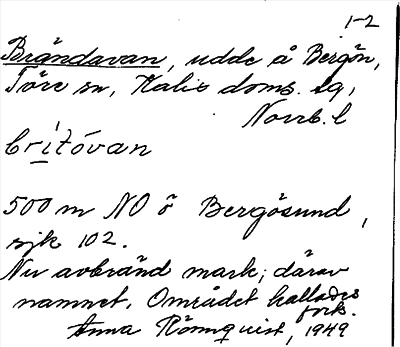 1-2
Brändavan, udde å Bergön,
Töre sn, Kalix doms. lg,
Norrb. l
brítóvan
500 m NO ö Bergösund,
sjk 102.
Nu avbränd mark; därav
namnet. Området kallades
förk.
Anna Rönnquist, 1949